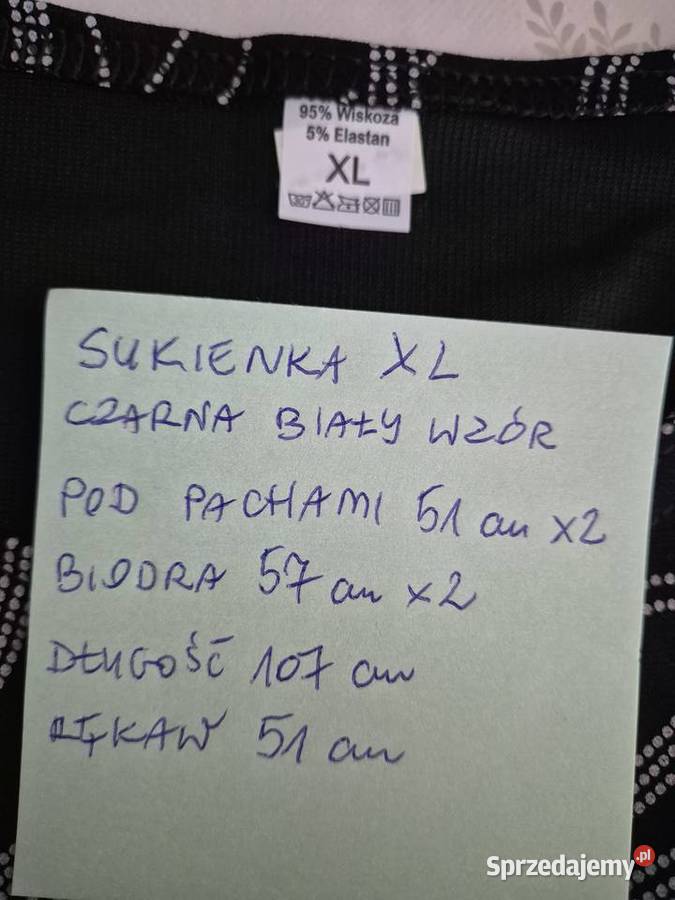 95% Wiskoza
5% Elastan
XL
SUKIENKA XL
CZARNA BIAŁY WZÓR
POD PACHAMI 51 cm x2
BIODRA 57 cm x2
DŁUGOŚĆ 107 cm
RĘKAW 51 cm
Sprzedajemy.pl